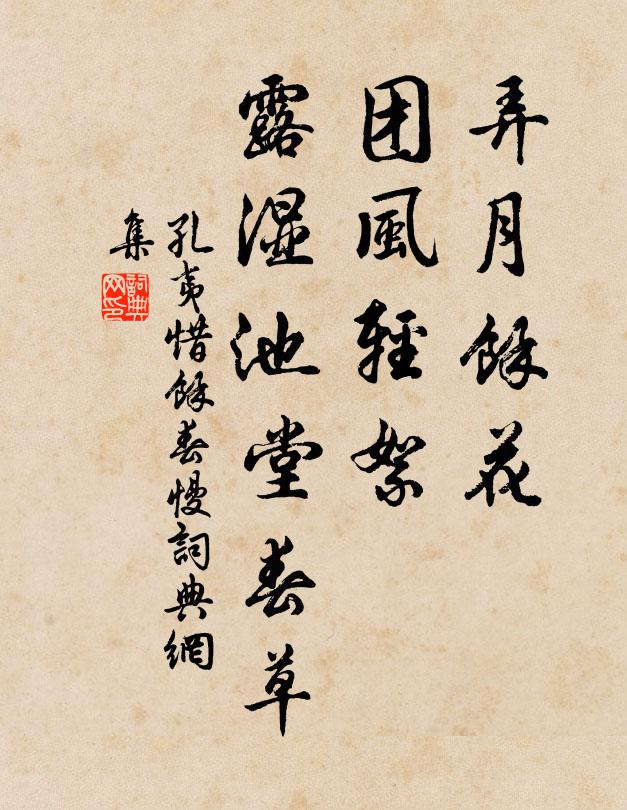 弄月餘花
团風輕絮
露湿池堂春草
孔夷惜餘春慢詞典網
集
詞典网印